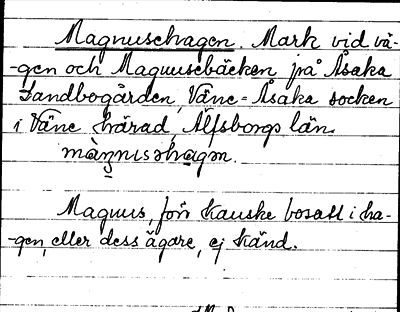 Magnusehagen. Mark vid vä-
-gen och Magnusebäcken på Åsaka
Sandbogården, Väne-Åsaka socken
i Väne härad, Älfsborgs län.
Magnus, förr kanske bosatt i ha-
-gen, eller dess ägare, ej känd.